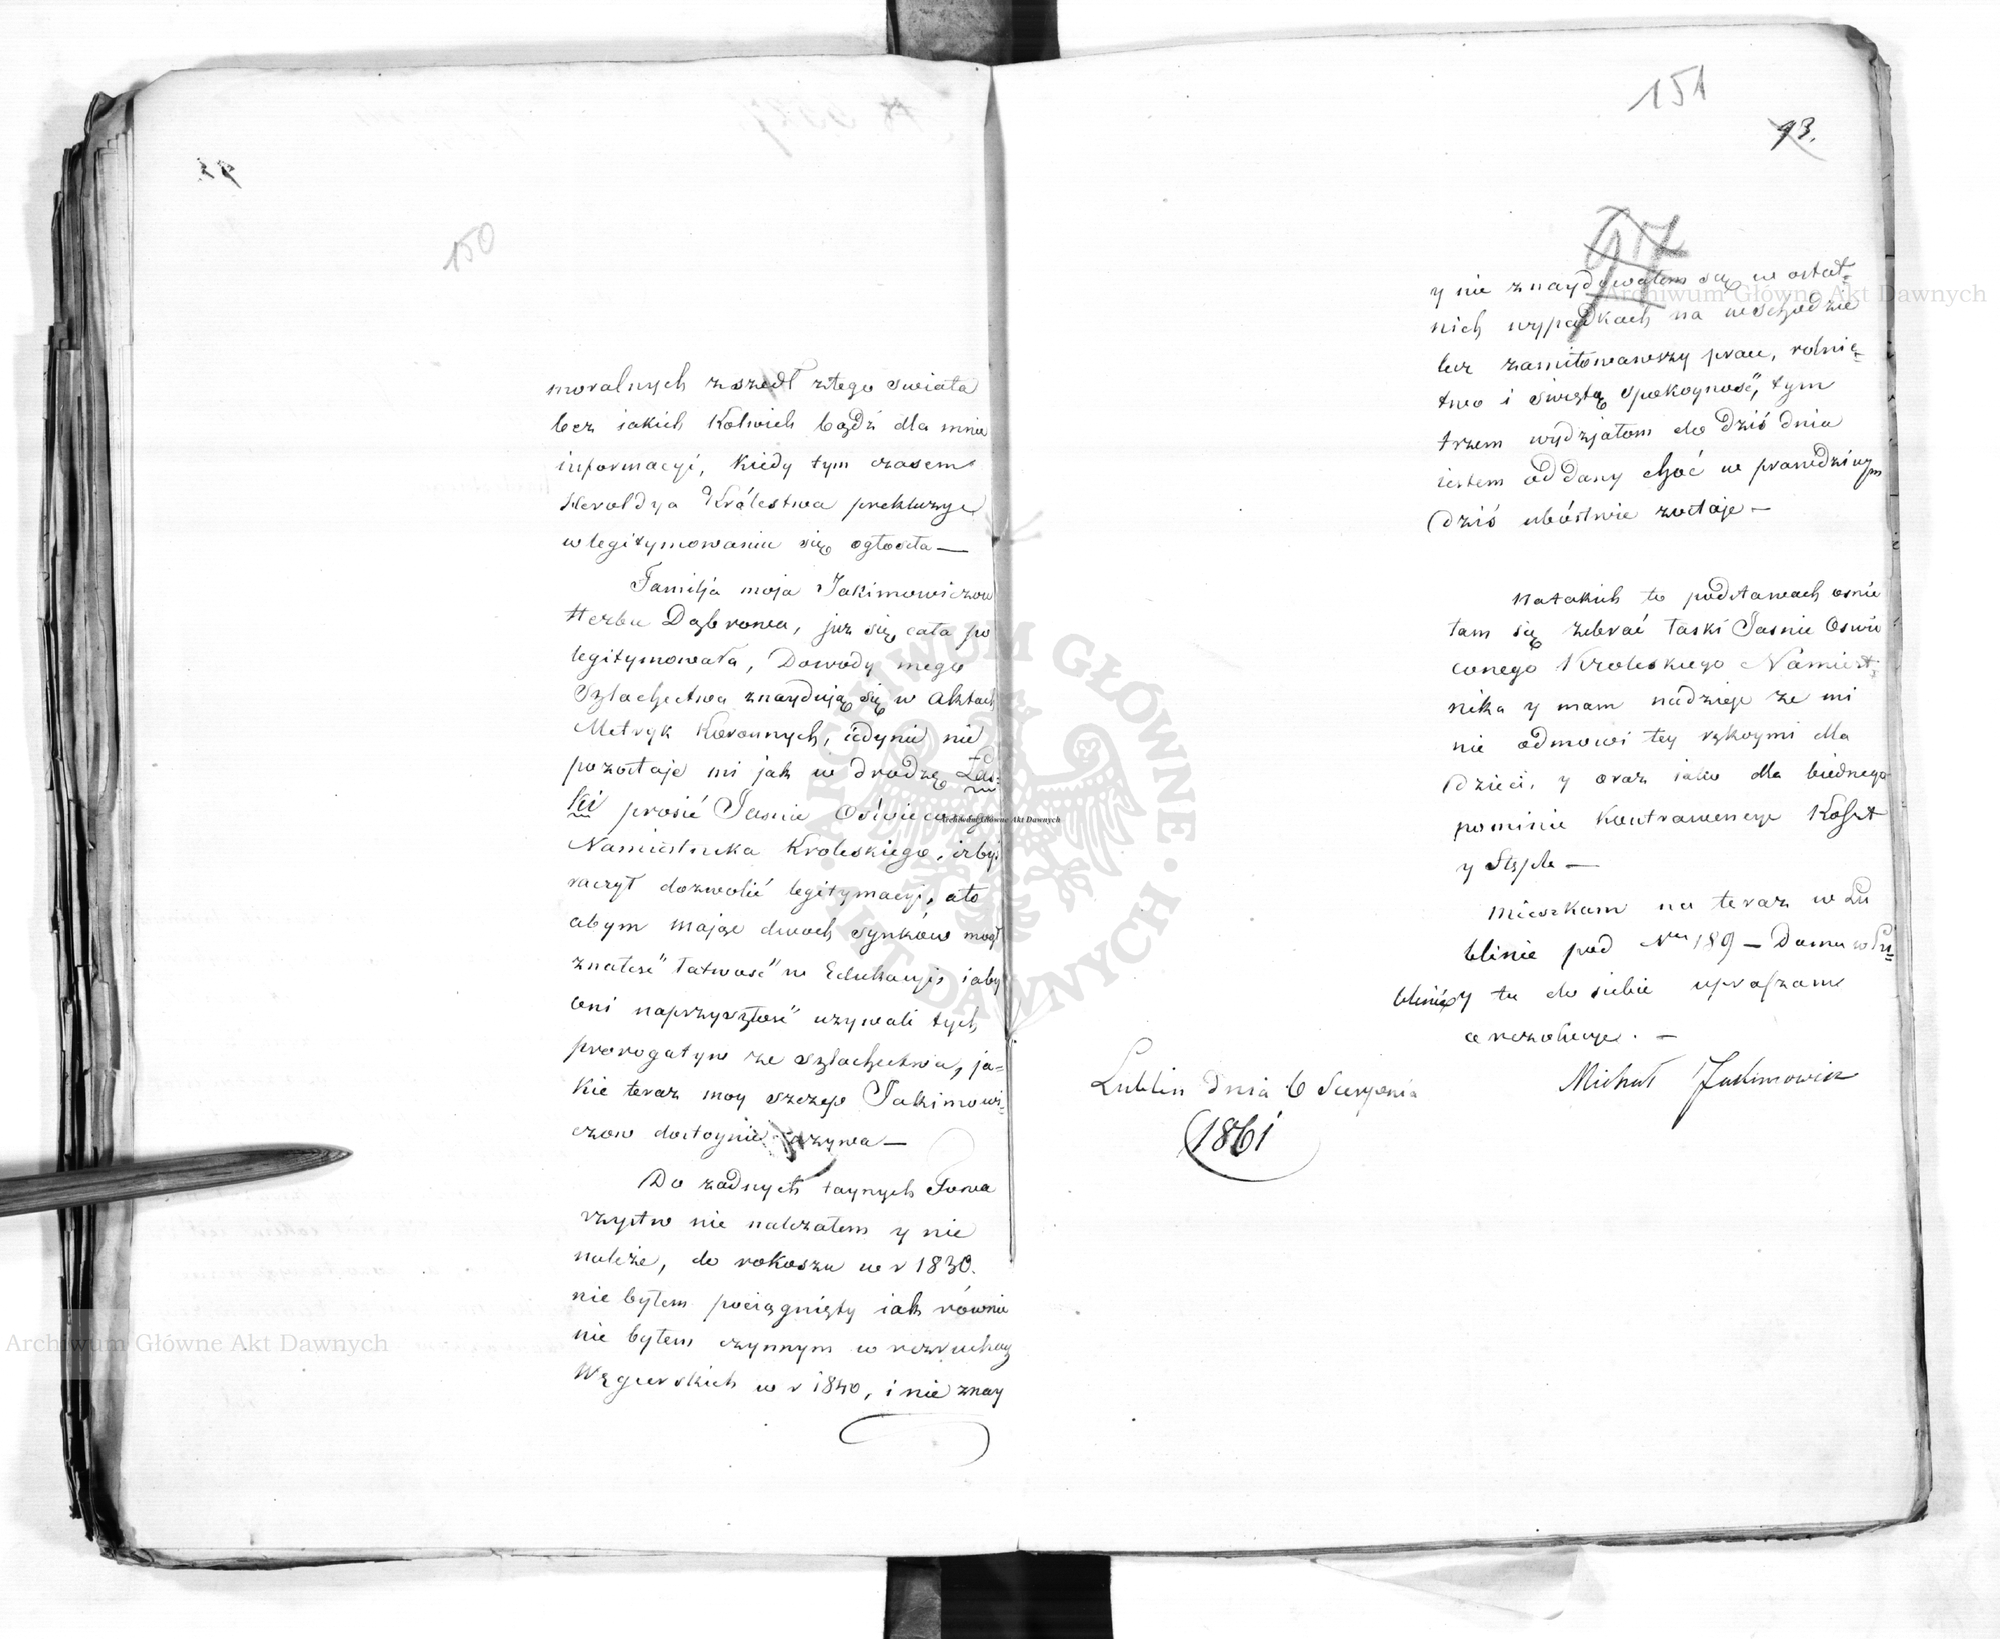 150
moralnych zszedł ztego swiata
bez jakich Kolwiek bądź dla mnie
informacyi, kiedy tym czasem
Heroldya Królestwa prekluzye
w legitymowaniu się ogłosiła —
Familja moja Jakimowiczow
Herbu Dąbrowa, juz się cała po
legitymowała, Dowody mego
Szlachectwa znaydują się w Aktach
Metryk Koronnych, iedynie nie
pozostaje mi jak w drodzę Łas-
ki prosić Jasnie Oświeconego
Namiestnika Kroleskiego, izby
raczył dozwolić legitymacyi, ato
abym mając dwoch synków mogł
znaleść łatwość w Edukacyi, iaby
oni naprzyszłość uzywali tych
prorogatyw ze szlachectwa, ja-
kie teraz moy szczep Jakimowi-
czow dostoynie uzywa —
Do zadnych taynych Towa
rzystw nie nalezałem y nie
należe, do rokoszu w r 1830.
nie byłem pociągnięty iak równie
nie byłem czynnym w rozruchach
Węgierskich w r 1840, i nie znay
151
93.
97
y nie znaydowałem się w ostat-
nich wypadkach na wschodzie
lecz zamiłowawszy prace, rolnic-
two i swiętą spokoyność, tym
trzem wydzjałom do dziś dnia
iestem oddany choć w prawdziwym
dziś ubóstwie zostaje —
Natakich to podstawach osmie
łam się zebrać łaski Jasnie Oswie
conego Kroleskiego Namiest-
nika y mam nadzieje ze mi
nie odmowi tey rękoymi dla
dzieci, y oraz iako dla biednego
pominie Kontrawencye Koszt
y Stęple —
Mieszkam na teraz w Lu
blinie pod Nrm 189 — Domu w Lu
blinie y tu do siebie upraszam
o rezolucye. —
Michał Jakimowicz
Lublin dnia 6 Sierpnia
1861
ARCHIWUM GŁÓWNE AKT DAWNYCH
Archiwum Główne Akt Dawnych
Archiwum Główne Akt Dawnych
Archiwum Główne Akt Dawnych